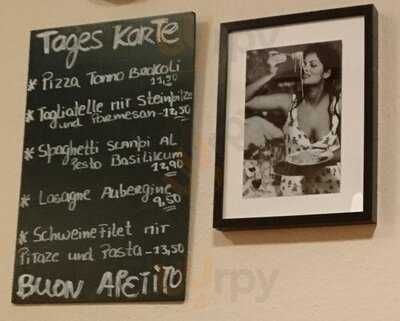 Tages Karte
* Pizza Tonno Broccoli
11,50
* Tagliatelle mit Steinpilze
und Parmesan - 12,50
* Spaghetti scampi AL
Pesto Basilikum
12,90
* Lasagne Aubergine
9,50
* SchweineFilet mit
Pilze und Pasta - 13,50
BUON APETITO